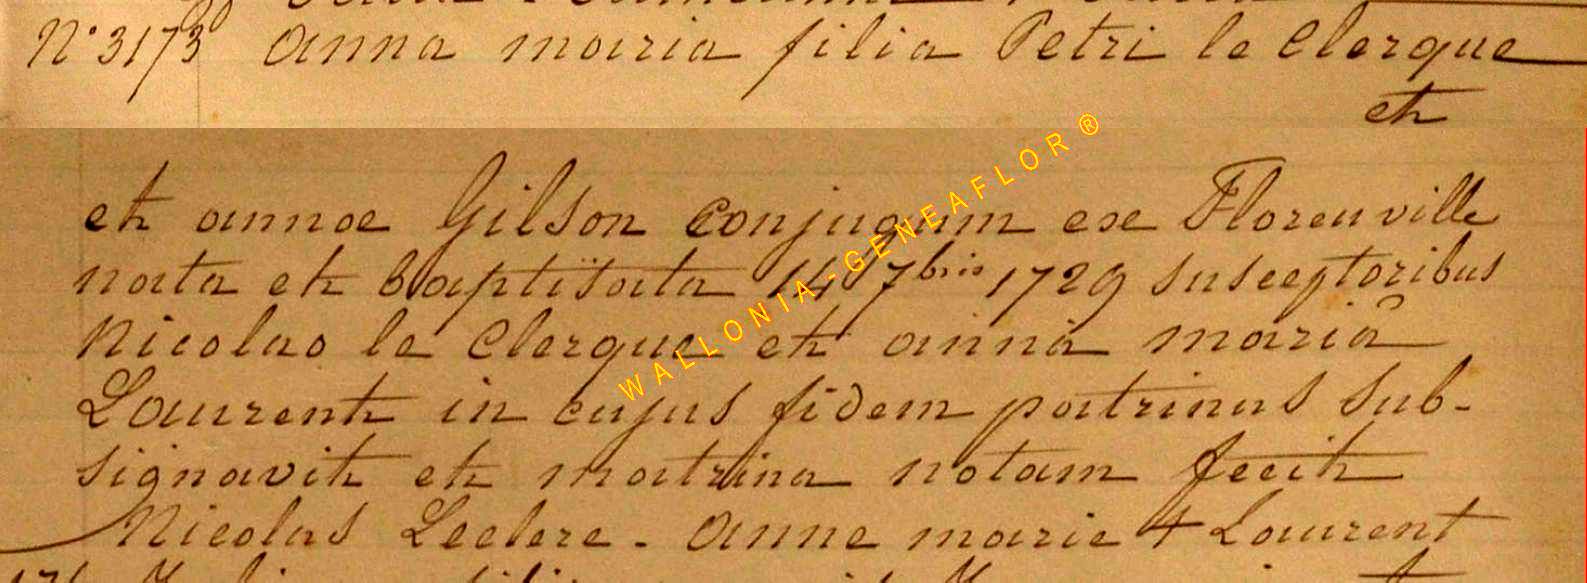 N° 3173 anna maria filia Petri le Clerque
et
et annae Gilson conjugum ex Florenville
nata et baptisata 14 7bris 1729 susceptoribus
Nicolao le Clerque et anna mariâ
Laurent in cujus fidem patrinus sub-
signavit et matrina notam fecit
Nicolas Leclere - anne marie + Laurent
WALLONIA-GENEAFLOR ®